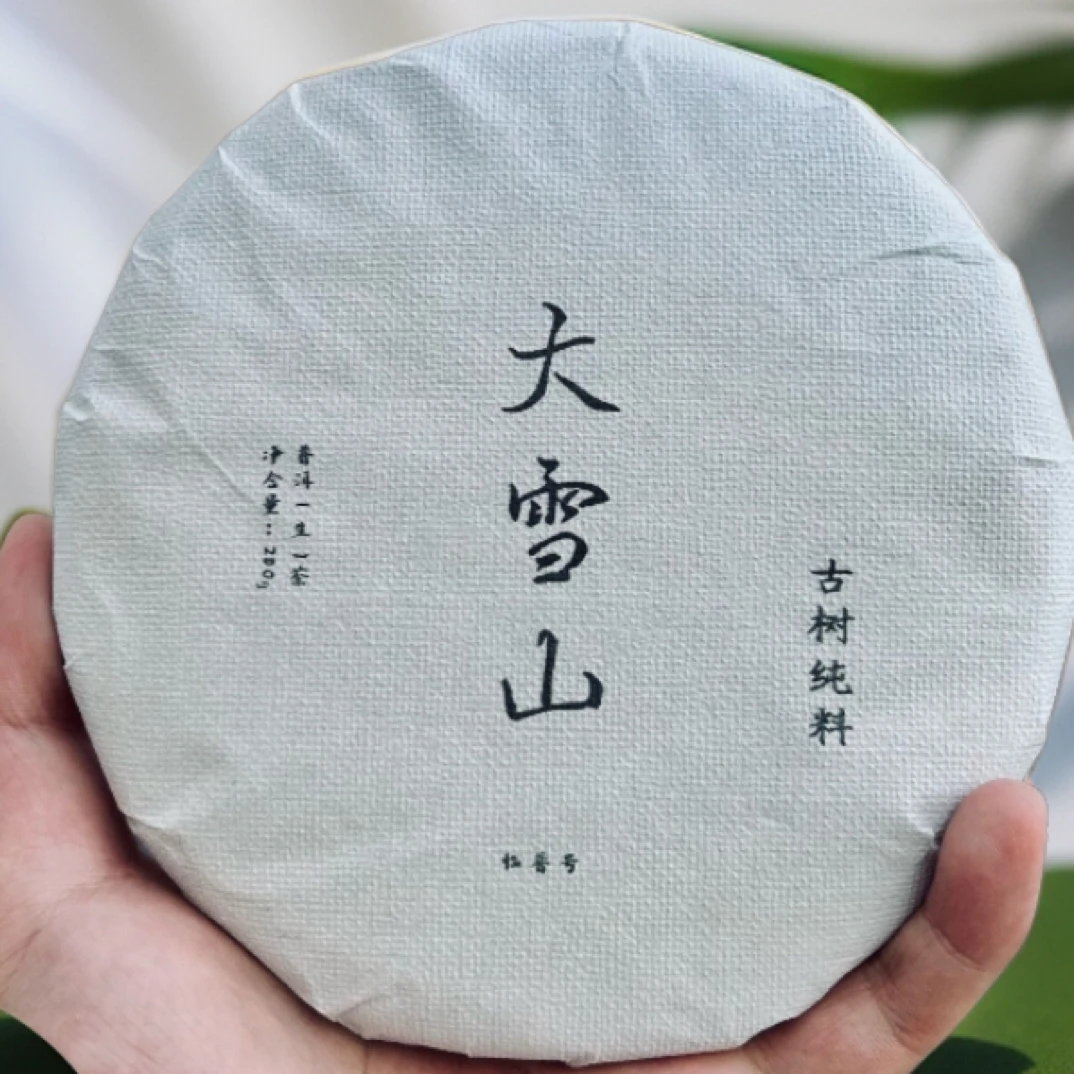 大雪山
古树纯料
普洱一生一茶
净含量：200g